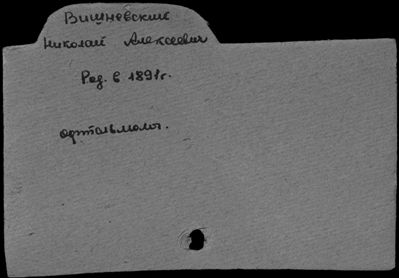 Вишневский
Николай Алексеевич
Род. в 1891г.
офтальмолог.